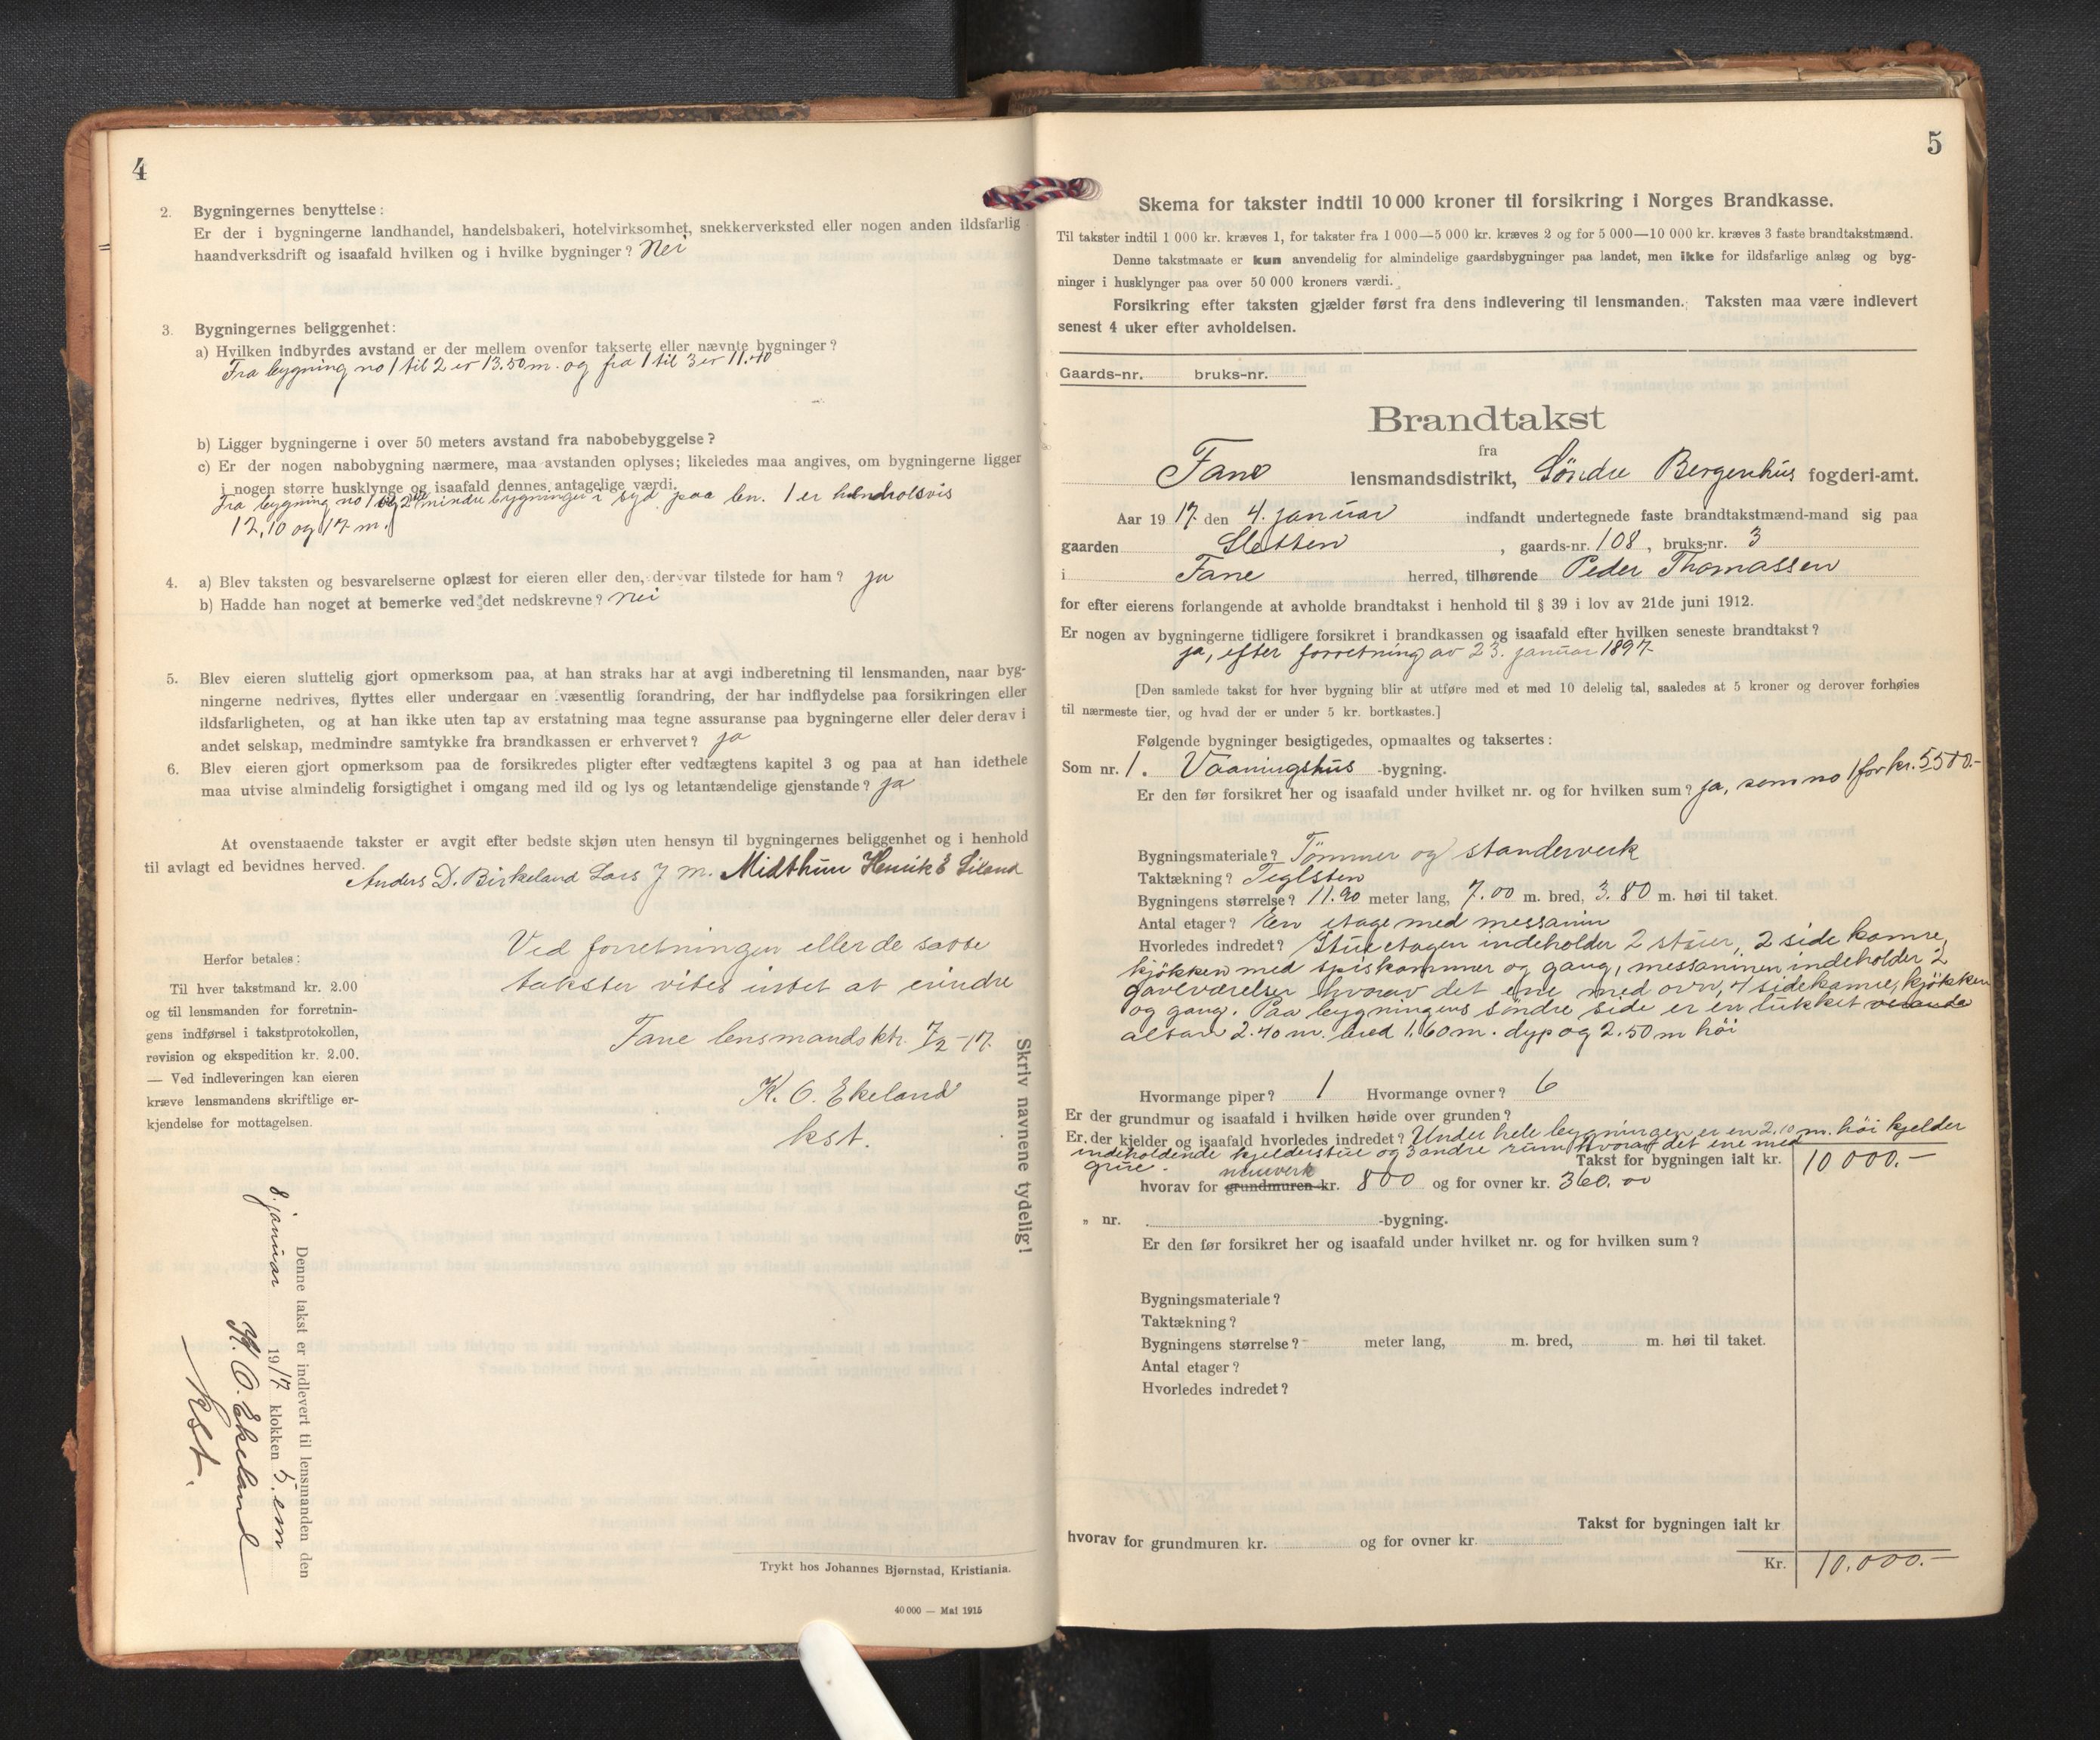 4
2. Bygningernes benyttelse:
Er der i bygningerne landhandel, handelsbakeri, hotelvirksomhet, snekkerverksted eller nogen anden ildsfarlig
haandverksdrift og isaafald hvilken og i hvilke bygninger? Nei
3. Bygningernes beliggenhet:
a) Hvilken indbyrdes avstand er der mellem ovenfor takserte eller nævnte bygninger?
Fra bygning no 1 til 2 er 13.50 m. og fra 1 til 3 er 11.40
b) Ligger bygningerne i over 50 meters avstand fra nabobebyggelse?
c) Er der nogen nabobygning nærmere, maa avstanden oplyses; likeledes maa angives, om bygningerne ligger
i nogen større husklynge og isaafald dennes antagelige værdi.
Fra bygning no 1 og 2 mindre bygninger i syd paa bn. 1 er henholsvis
12,10 og 17 m.
4. a) Blev taksten og besvarelserne oplæst for eieren eller den, der var tilstede for ham? ja
b) Hadde han noget at bemerke ved det nedskrevne? nei
5. Blev eieren sluttelig gjort opmerksom paa, at han straks har at avgi indberetning til lensmanden, naar byg-
ningerne nedrives, flyttes eller undergaar en væsentlig forandring, der har indflydelse paa forsikringen eller
ildsfarligheten, og at han ikke uten tap av erstatning maa tegne assuranse paa bygningerne eller deler derav i
andet selskap, medmindre samtykke fra brandkassen er erhvervet? ja
6. Blev eieren gjort opmerksom paa de forsikredes pligter efter vedtægtens kapitel 3 og paa at han idethele
maa utvise almindelig forsigtighet i omgang med ild og lys og letantændelige gjenstande? ja
At ovenstaaende takster er avgit efter bedste skjøn uten hensyn til bygningernes beliggenhet og i henhold
til avlagt ed bevidnes herved.
Anders D. Birkeland Lars J M. Midthun Henrik E Siland
Ved forretningen eller de satte
takster vites intet at erindre
Fane lensmandsktr. 7/2-17.
K. O. Ekeland
kst.
Herfor betales:
Til hver takstmand kr. 2.00
og til lensmanden for forretnin-
gens indførsel i takstprotokollen,
revision og ekspedition kr. 2.00.
— Ved indleveringen kan eieren
kræve lensmandens skriftlige er-
kjendelse for mottagelsen.
Skriv navnene tydelig!
Denne takst er indlevert til lensmanden den
8. januar 1917 klokken 5. em
K. O. Ekeland
kst.
Trykt hos Johannes Bjørnstad, Kristiania.
40 000 — Mai 1915
5
Skema for takster indtil 10 000 kroner til forsikring i Norges Brandkasse.
Til takster indtil 1 000 kr. kræves 1, for takster fra 1 000—5 000 kr. kræves 2 og for 5 000—10 000 kr. kræves 3 faste brandtakstmænd.
Denne takstmaate er kun anvendelig for almindelige gaardsbygninger paa landet, men ikke for ildsfarlige anlæg og byg-
ninger i husklynger paa over 50 000 kroners værdi.
Forsikring efter taksten gjælder først fra dens indlevering til lensmanden. Taksten maa være indlevert
senest 4 uker efter avholdelsen.
Gaards-nr. bruks-nr.
Brandtakst
fra
Fane lensmandsdistrikt, Söndre Bergenhus fogderi-amt.
Aar 1917. den 4. januar indfandt undertegnede faste brandtakstmænd-mand sig paa
gaarden Sletten, gaards-nr. 108, bruks-nr. 3
i Fane herred, tilhørende Peder Thomassen
for efter eierens forlangende at avholde brandtakst i henhold til § 39 i lov av 21de juni 1912.
Er nogen av bygningerne tidligere forsikret i brandkassen og isaafald efter hvilken seneste brandtakst?
ja, efter forretning av 23. januar 1897.
[Den samlede takst for hver bygning blir at utføre med et med 10 delelig tal, saaledes at 5 kroner og derover forhøies
til nærmeste tier, og hvad der er under 5 kr. bortkastes.]
Følgende bygninger besigtigedes, opmaaltes og taksertes:
Som nr. 1. Vaaningshus -bygning.
Er den før forsikret her og isaafald under hvilket nr. og for hvilken sum? Ja, som no 1 for kr. 5500.-
Bygningsmateriale? Tömmer og standerverk
Taktækning? Teglsten
Bygningens størrelse? 11.90 meter lang, 7.00 m. bred, 3.80 m. høi til taket.
Antal etager? En etage med messanin
Hvorledes indredet? Stueetagen indeholder 2 stuer, 2 side kamre,
kjökken med spiskammer og gang, messaninen indeholder 2
gavlværelser hvorav det ene med ovn, 4 sidekamre, kjökken
og gang. Paa bygningens söndre side er en lukket veranda
altan 2.40 m. bred 1.60 m. dyp og 2.50 m höi
Hvormange piper? 1 Hvormange ovner? 6
Er der grundmur og isaafald i hvilken høide over grunden?
Er der kjelder og isaafald hvorledes indredet? Under hele bygningen er en 2.10 m. höi kjelder
indeholdende kjelderstue og 3 andre rum hvorav det ene med
grue.
Takst for bygningen ialt kr. 10 000.-
murverk
hvorav for grundmuren kr. 800 og for ovner kr. 360.00
„ nr. -bygning.
Er den før forsikret her og isaafald under hvilket nr. og for hvilken sum?
Bygningsmateriale?
Taktækning?
Bygningens størrelse? meter lang, m. bred, m. høi til taket.
Antal etager?
Hvorledes indredet?
Takst for bygningen ialt kr
hvorav for grundmuren kr. og for ovner kr
Kr. 10.000.-